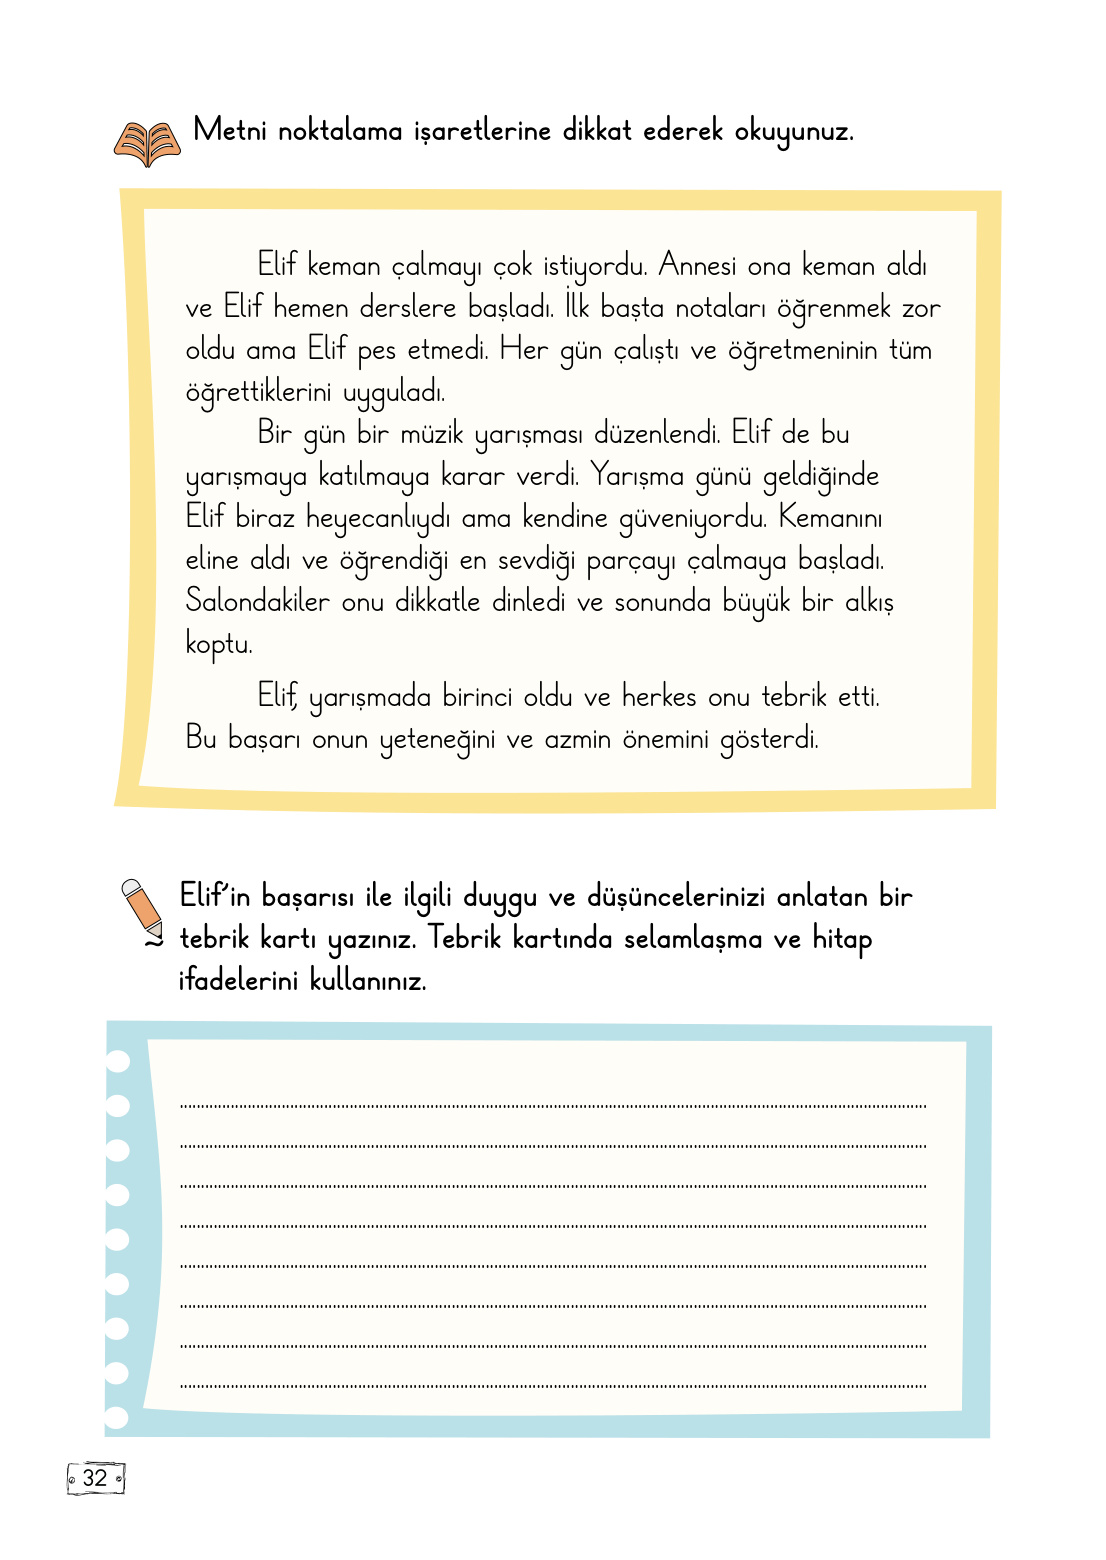 Metni noktalama işaretlerine dikkat ederek okuyunuz.
Elif keman çalmayı çok istiyordu. Annesi ona keman aldı
ve Elif hemen derslere başladı. İlk başta notaları öğrenmek zor
oldu ama Elif pes etmedi. Her gün çalıştı ve öğretmeninin tüm
öğrettiklerini uyguladı.
Bir gün bir müzik yarışması düzenlendi. Elif de bu
yarışmaya katılmaya karar verdi. Yarışma günü geldiğinde
Elif biraz heyecanlıydı ama kendine güveniyordu. Kemanını
eline aldı ve öğrendiği en sevdiği parçayı çalmaya başladı.
Salondakiler onu dikkatle dinledi ve sonunda büyük bir alkış
koptu.
Elif, yarışmada birinci oldu ve herkes onu tebrik etti.
Bu başarı onun yeteneğini ve azmin önemini gösterdi.
Elif'in başarısı ile ilgili duygu ve düşüncelerinizi anlatan bir
tebrik kartı yazınız. Tebrik kartında selamlaşma ve hitap
ifadelerini kullanınız.
32